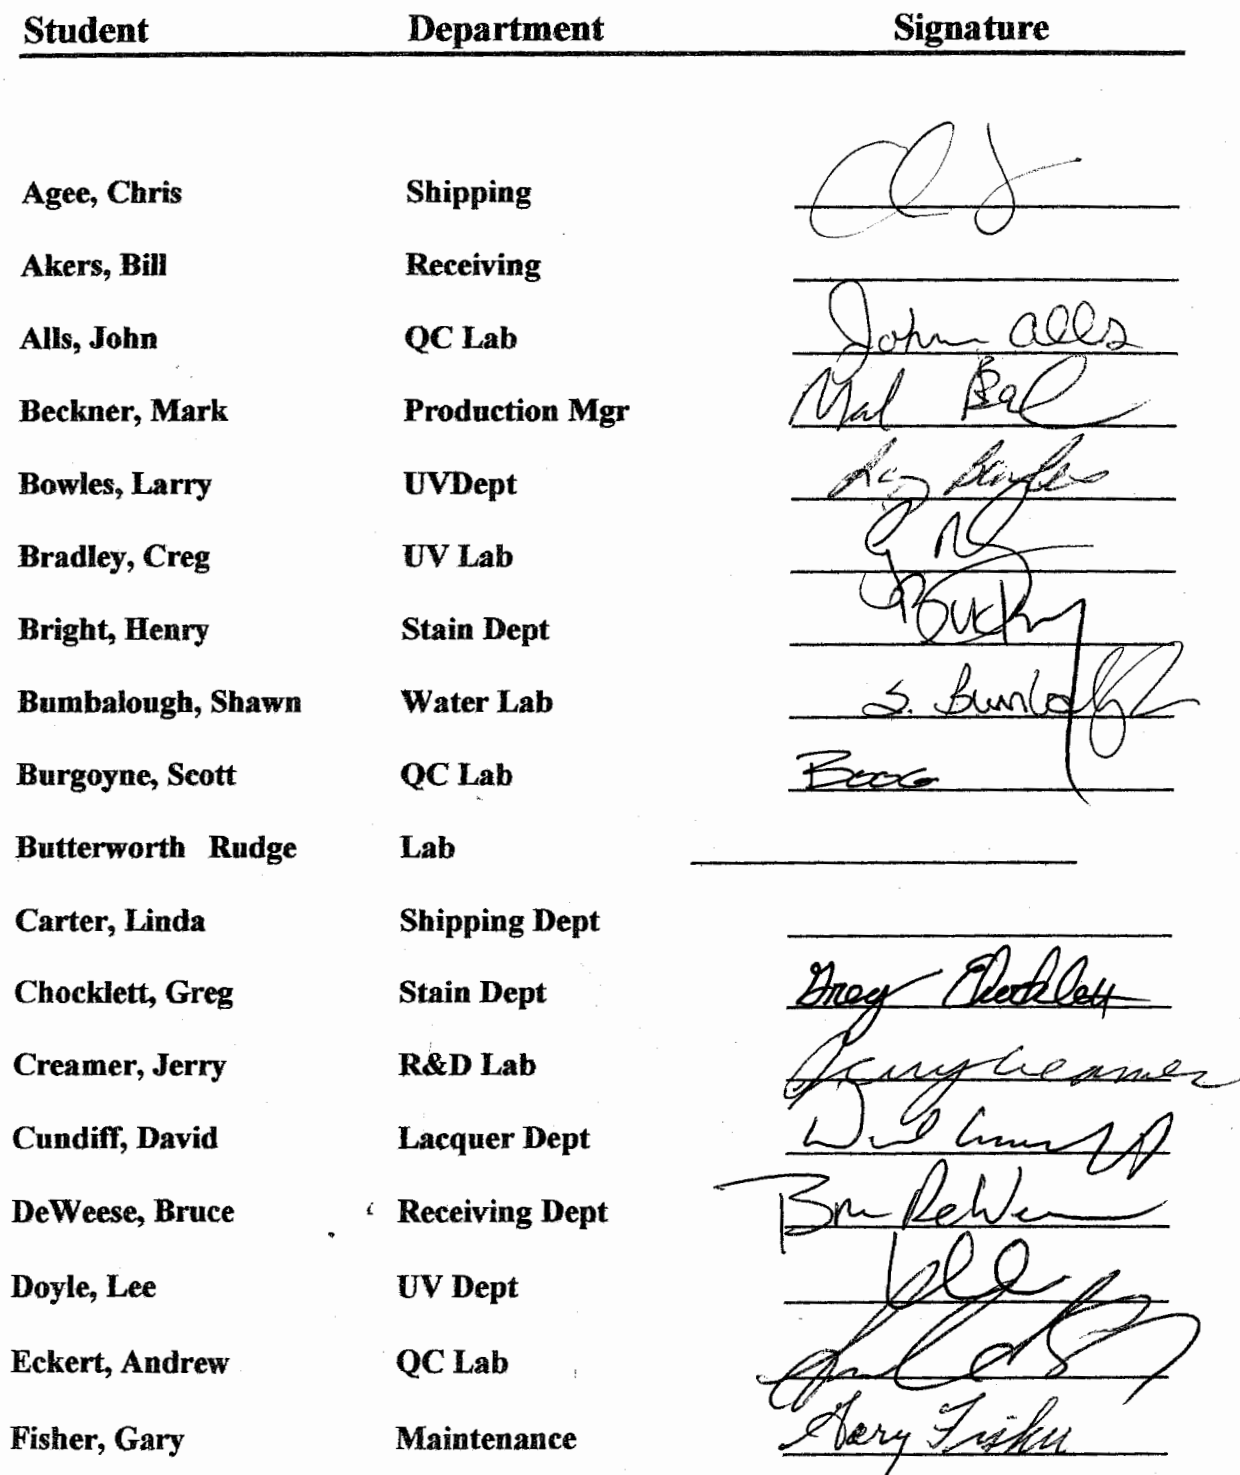 Student Department Signature
Agee, Chris Shipping
Akers, Bill Receiving
Alls, John QC Lab John Alls
Beckner, Mark Production Mgr
Bowles, Larry UVDept
Bradley, Creg UV Lab
Bright, Henry Stain Dept Bucky
Bumbalough, Shawn Water Lab S.
Burgoyne, Scott QC Lab
Butterworth Rudge Lab
Carter, Linda Shipping Dept
Chocklett, Greg Stain Dept Greg Chocklett
Creamer, Jerry R&D Lab Jerry Creamer
Cundiff, David Lacquer Dept
DeWeese, Bruce Receiving Dept
Doyle, Lee UV Dept
Eckert, Andrew QC Lab
Fisher, Gary Maintenance Gary Fisher